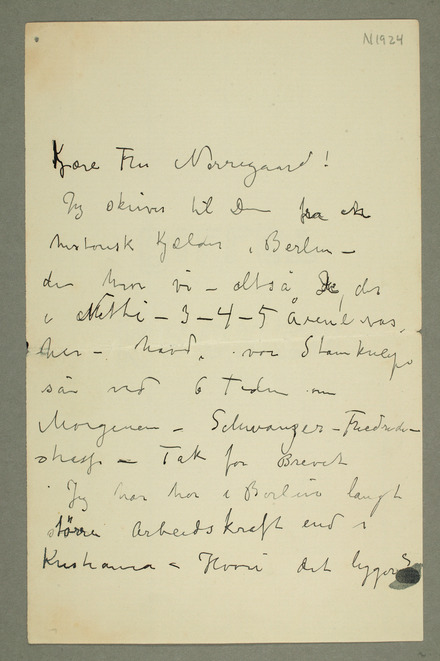 N1924
Kjære Fru Nørregaard!
Jeg skriver til Dem fra et
historisk Kjælder i Berlin –
der hvor vi – altså De, des
i – 3 – 4 – 5 Årene var,
her – havde vor Stamkneipe
så ved 6 Tiden om
Morgenen – Schwanzer – Friedrich-
strasse – Tak for Brevet
Jeg har her i Berlin langt
större Arbeidskraft end i
Kristiania – Hvori det ligger?